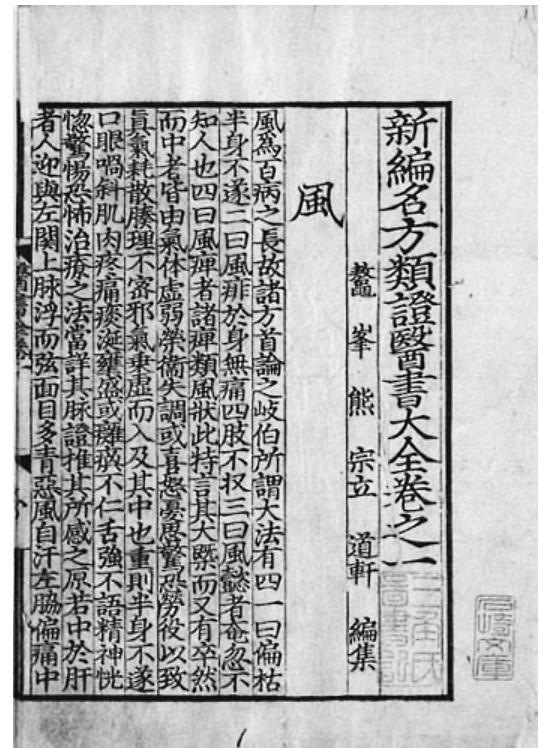 新編名方類證醫書大全卷之一
鼇峯熊宗立道軒編集
風
風爲百病之長故諸方首論之岐伯所謂大法有四一曰偏枯
半身不遂二曰風痱於身無痛四肢不収三曰風懿者奄忽不
知人也四曰風痺者諸痺類風狀此特言其大槩而又有卒然
而中者皆由氣体虛弱榮衛失調或喜怒憂思驚恐勞役以致
眞氣耗散腠理不密邪氣乗虛而入及其中也重則半身不遂
口眼喎斜肌肉疼痛痰涎壅盛或癱瘓不仁舌強不語精神恍
惚驚惕恐怖治療之法當詳其脉證推其所感之原若中於肝
者人迎與左關上脉浮而弦面目多青惡風自汗左脇偏痛中